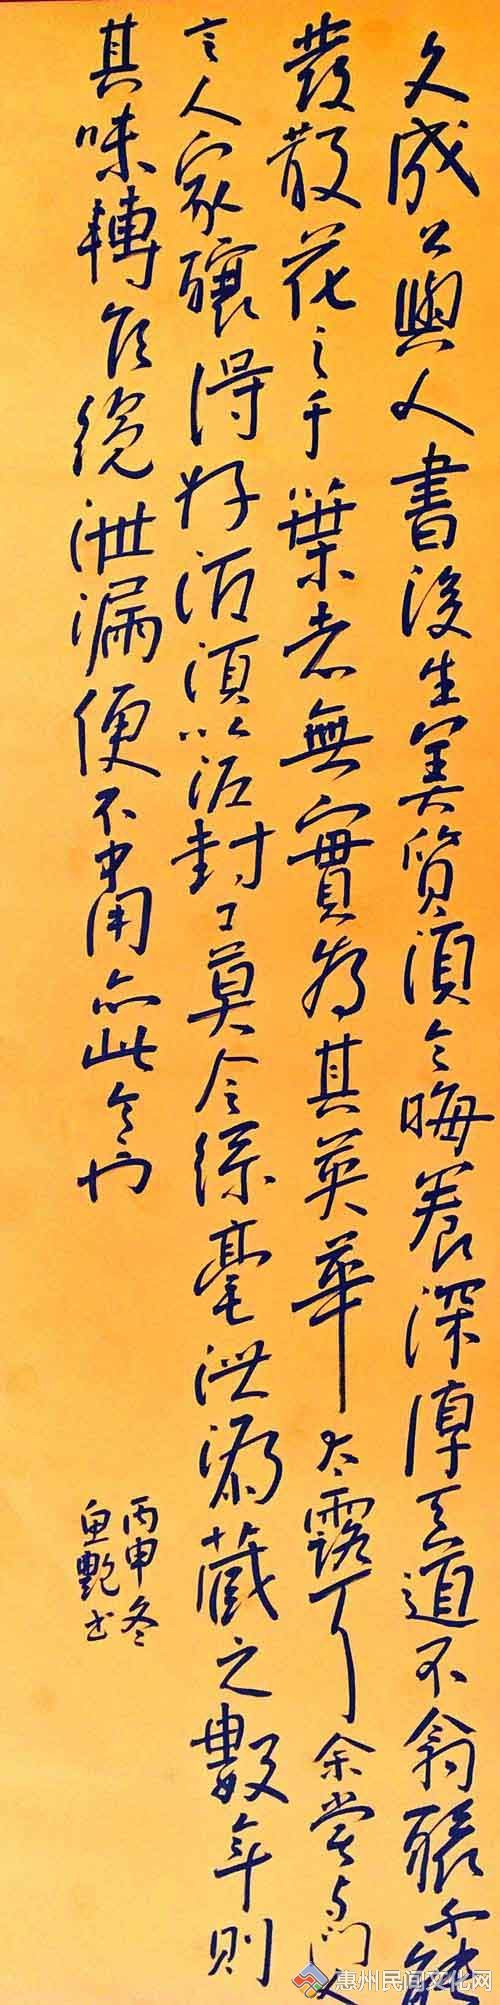 文成公與人書後生美質須令晦養深厚天道不翕聚不能
發散花之千葉者無實為其英華太露耳余嘗与門人
言人家釀得好酒須以泥封口莫令絲毫泄漏藏之數年則
其味轉佳纔泄漏便不中用亦此意也
丙申冬
艷书
惠州民间文化网